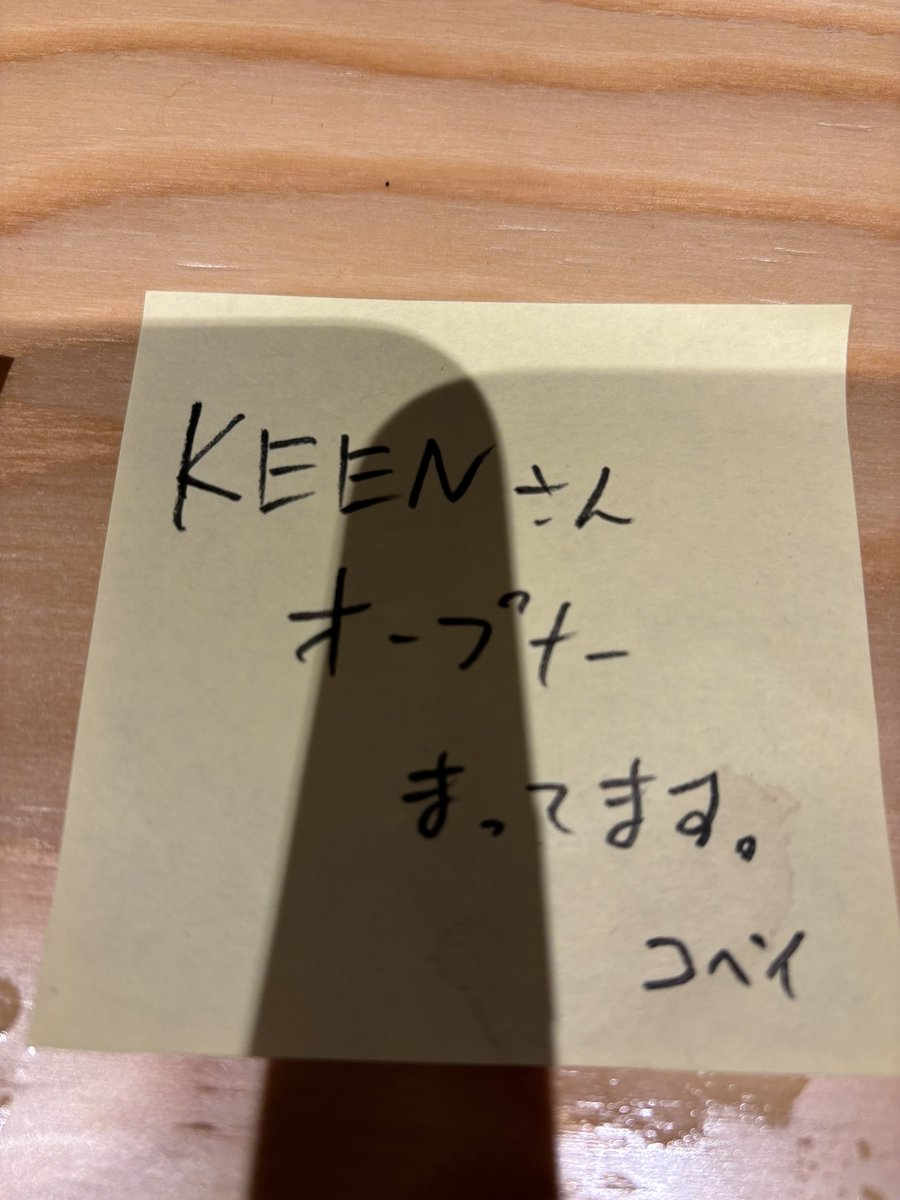 KEENさん
オープナー
まってます。
コペイ